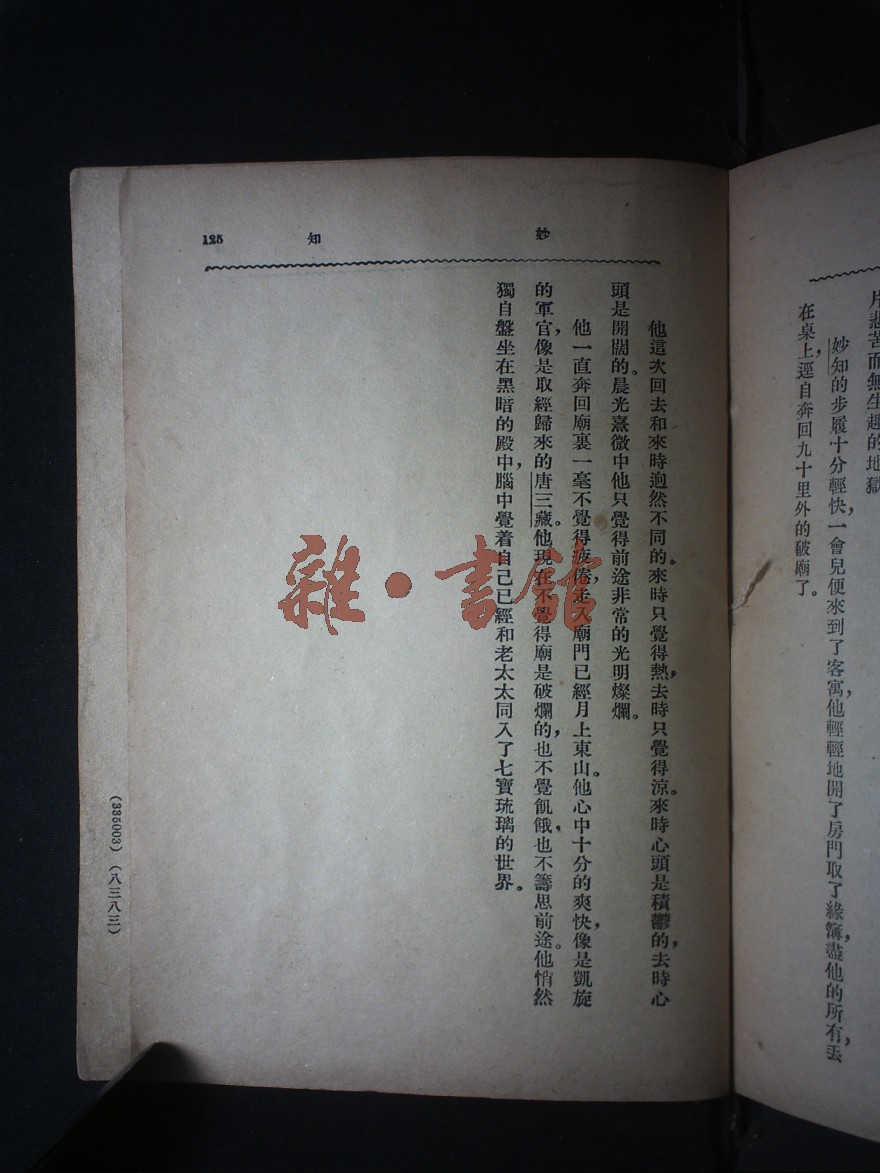 片悲苦而無生趣的地獄
妙知的步履十分輕快，一會兒便來到了客寓，他輕輕地開了房門，取了緣簿，盡他的所有，丟
在桌上，逕自奔回九十里外的破廟了。
妙知 125
他這次回去和來時逈然不同的。來時只覺得熱，去時只覺得涼。來時心頭是積鬱的，去時心
頭是開闊的。晨光熹微中他只覺得前途非常的光明燦爛。
他一直奔回廟裏一毫不覺得疲倦，走入廟門已經月上東山。他心中十分的爽快，像是凱旋
的軍官，像是取經歸來的唐三藏。他現在不覺得廟是破爛的，也不覺飢餓，也不籌思前途。他悄然
獨自盤坐在黑暗的殿中，腦中覺着自己已經和老太太同入了七寶琉璃的世界。
(335003)（八三八三）
雜·書館